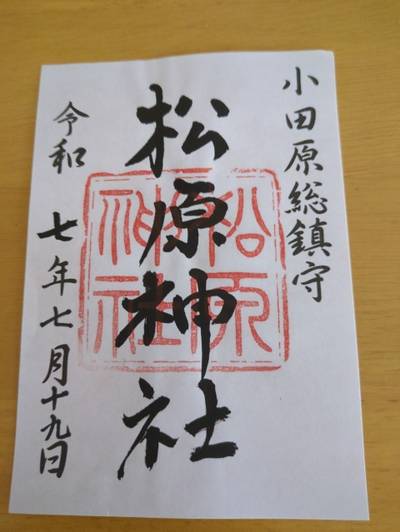 小田原総鎮守
松原神社
松原神社
令和七年七月十九日